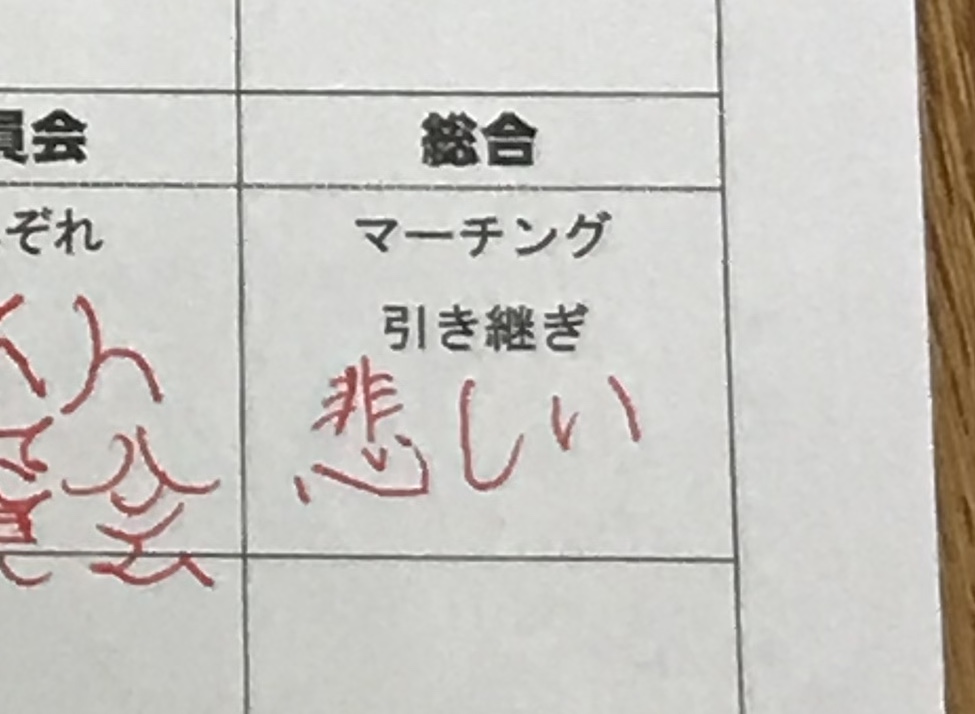 員会
総合
ぞれ
マーチング
引き継ぎ
悲しい